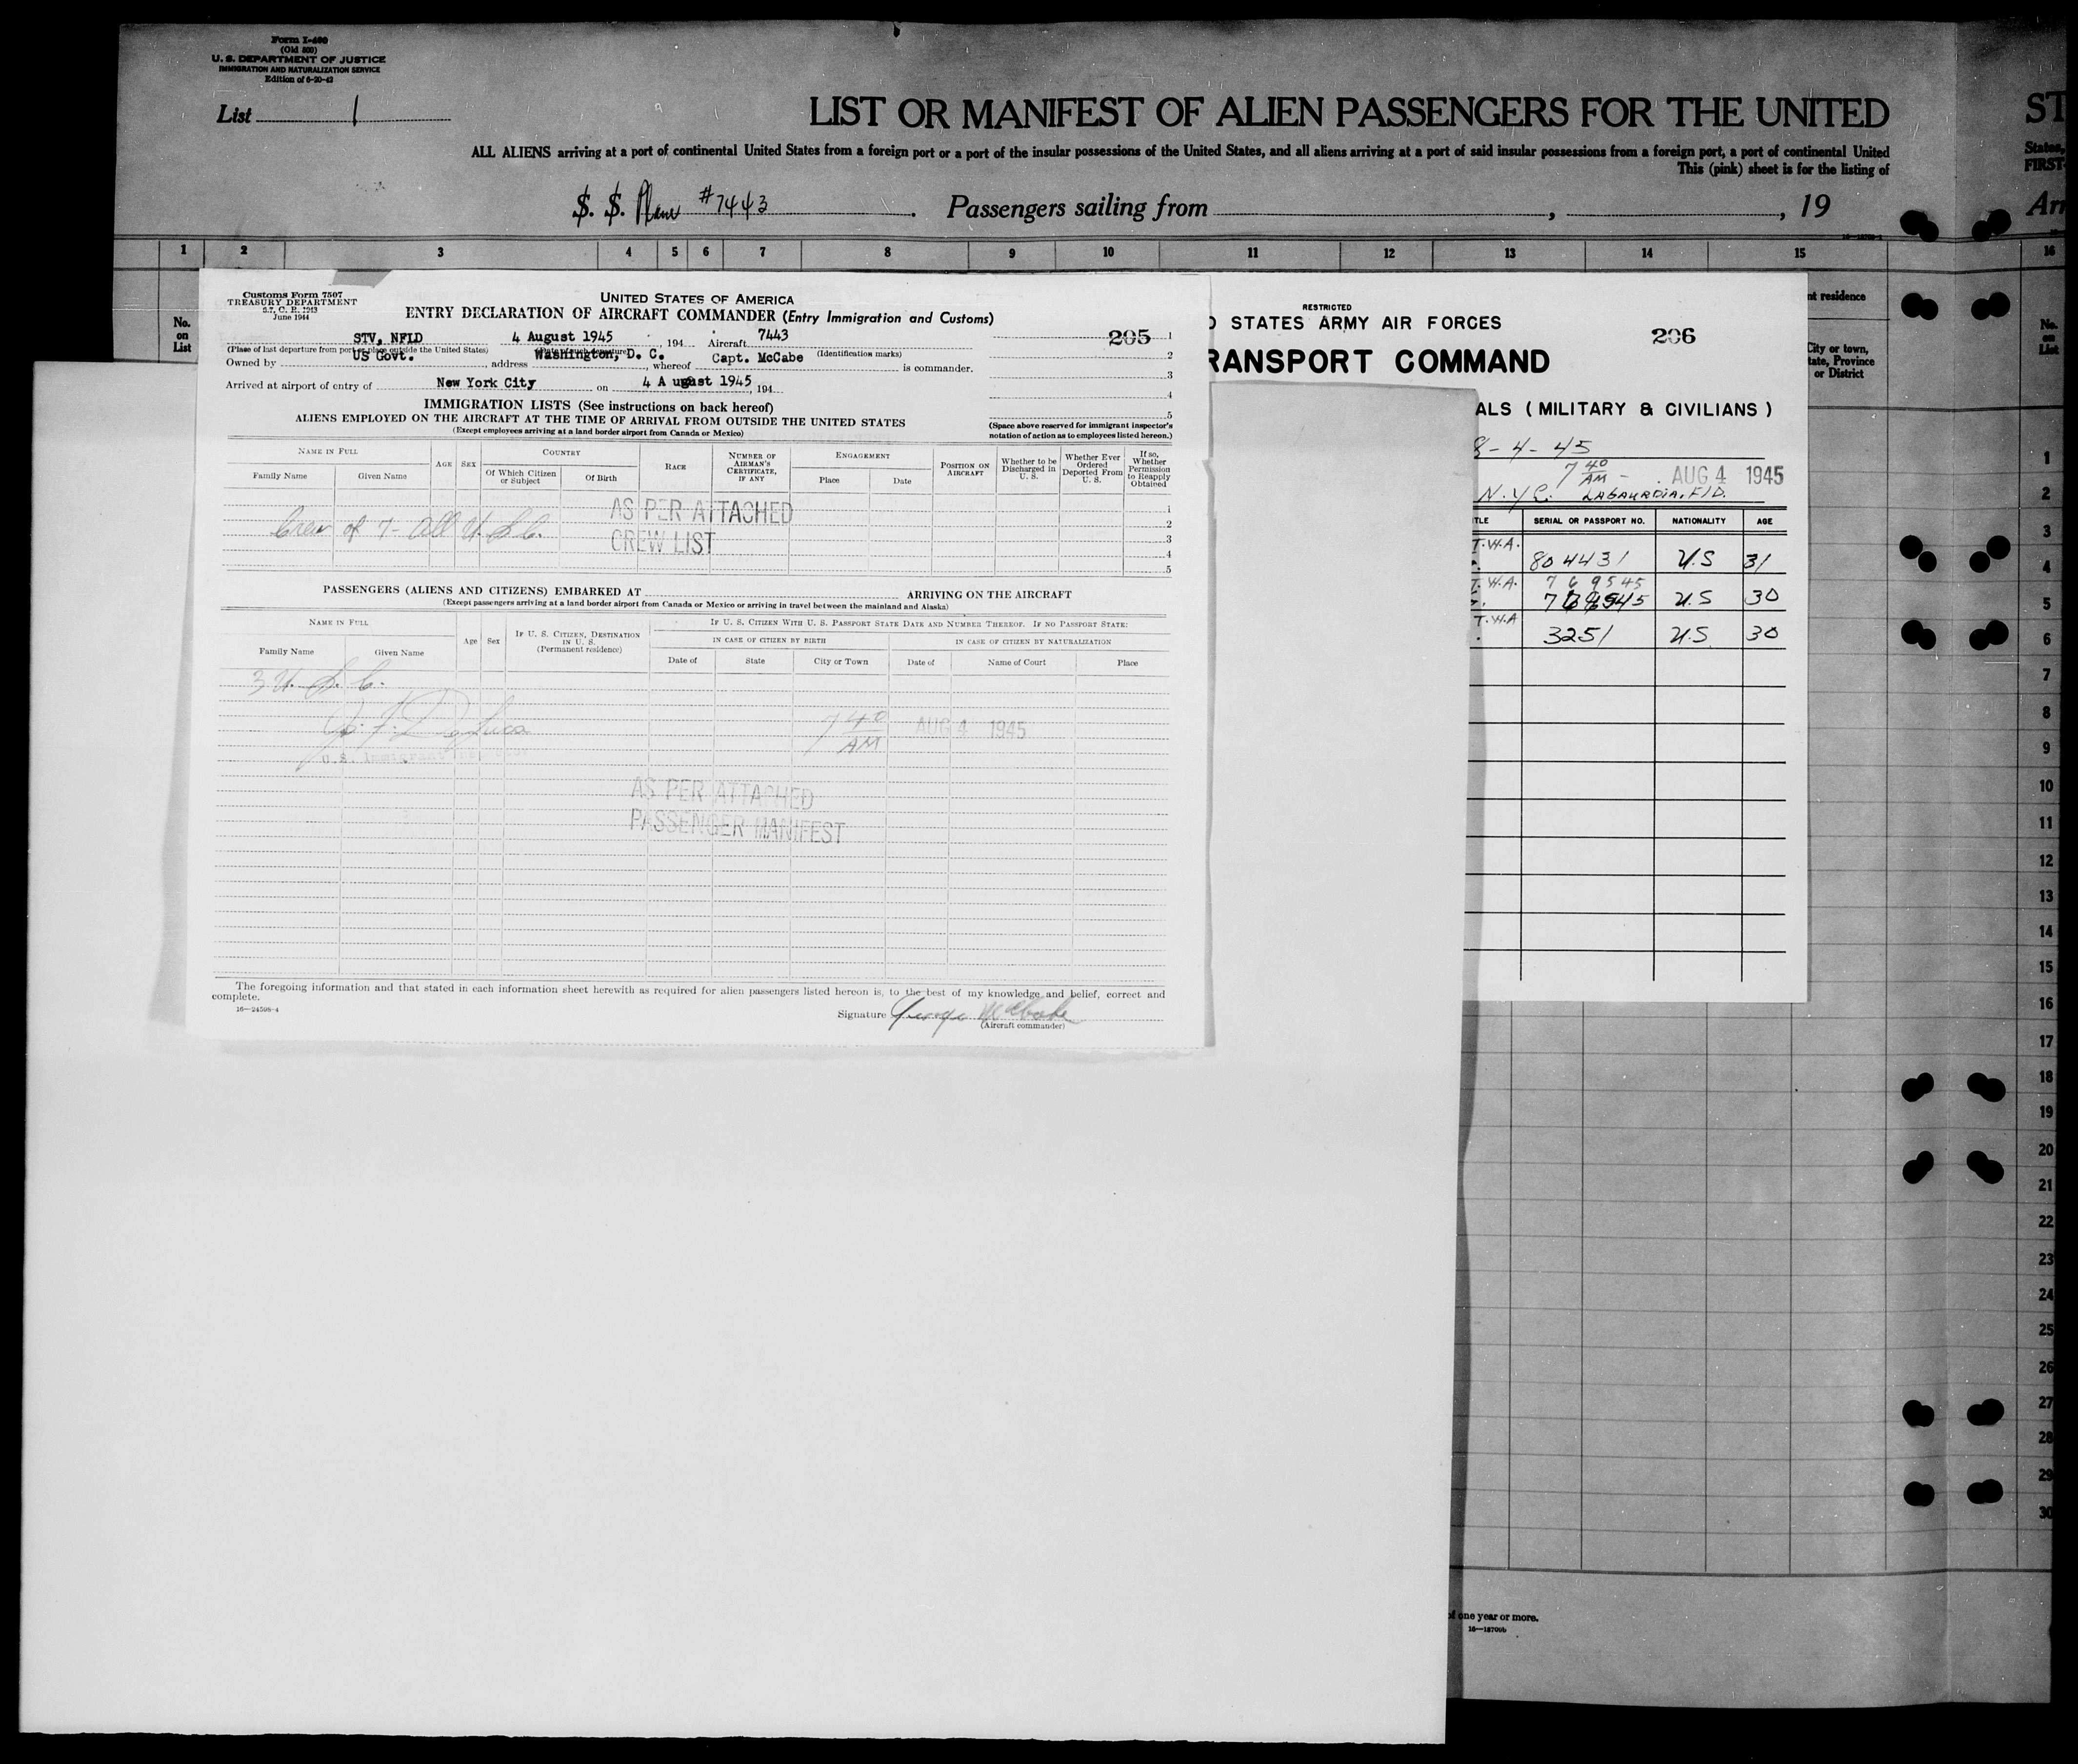 Form I-400
(Old 500)
U. S. DEPARTMENT OF JUSTICE
IMMIGRATION AND NATURALIZATION SERVICE
Edition of 6-20-43
List 1
LIST OR MANIFEST OF ALIEN PASSENGERS FOR THE UNITED
ST
ALL ALIENS arriving at a port of continental United States from a foreign port or a port of the insular possessions of the United States, and all aliens arriving at a port of said insular possessions from a foreign port, a port of continental United
States,
This (pink) sheet is for the listing of
FIRST
S. S. Plane #7443 . Passengers sailing from , , 19
Arr
1 2 3 4 5 6 7 8 9 10 11 12 13 14 15 16
No.
on
List
Customs Form 7507
TREASURY DEPARTMENT
June 1944
UNITED STATES OF AMERICA
ENTRY DECLARATION OF AIRCRAFT COMMANDER (Entry Immigration and Customs)
STV, NFLD 4 August 1945 , 194 Aircraft 7443
205 1
(Place of last departure from port or place outside the United States) (Identification marks)
2
Owned by US Govt. , address Washington, D. C. , whereof Capt. McCabe is commander.
3
Arrived at airport of entry of New York City on 4 August 1945 , 194
4
5
IMMIGRATION LISTS (See instructions on back hereof)
ALIENS EMPLOYED ON THE AIRCRAFT AT THE TIME OF ARRIVAL FROM OUTSIDE THE UNITED STATES
(Except employees arriving at a land border airport from Canada or Mexico)
(Space above reserved for immigrant inspector's
notation of action as to employees listed hereon.)
NAME IN FULL
Family Name Given Name
AGE SEX
COUNTRY
Of Which Citizen
or Subject
Of Birth
RACE
NUMBER OF
AIRMAN'S
CERTIFICATE,
IF ANY
ENGAGEMENT
Place Date
POSITION ON
AIRCRAFT
Whether to be
Discharged in
U. S.
Whether Ever
Ordered
Deported From
U. S.
If so,
Whether
Permission
to Reapply
Obtained
AS PER ATTACHED
CREW LIST
Crew of 7- all U. S. C.
1
2
3
4
5
PASSENGERS (ALIENS AND CITIZENS) EMBARKED AT ARRIVING ON THE AIRCRAFT
(Except passengers arriving at a land border airport from Canada or Mexico or arriving in travel between the mainland and Alaska)
NAME IN FULL
Family Name Given Name
Age Sex
IF U. S. CITIZEN, DESTINATION
IN U. S.
(Permanent residence)
IF U. S. CITIZEN WITH U. S. PASSPORT STATE DATE AND NUMBER THEREOF. IF NO PASSPORT STATE:
IN CASE OF CITIZEN BY BIRTH IN CASE OF CITIZEN BY NATURALIZATION
Date of State City or Town Date of Name of Court Place
3 U. S. C.
7 40 AM AUG 4 1945
AS PER ATTACHED
PASSENGER MANIFEST
The foregoing information and that stated in each information sheet herewith as required for alien passengers listed hereon is, to the best of my knowledge and belief, correct and
complete.
16—24598-4
Signature George McCabe
(Aircraft commander)
RESTRICTED
STATES ARMY AIR FORCES
206
TRANSPORT COMMAND
ALS ( MILITARY & CIVILIANS )
8-4-45
7 40 AM - AUG 4 1945
N.Y.C. LAGAURDIA, FLD.
TLE SERIAL OR PASSPORT NO. NATIONALITY AGE
T.W.A. 804431 U.S 31
T.W.A. 769545
769545 U.S 30
T.W.A 3251 U.S. 30
nt residence
City or town,
tate, Province
or District
No.
on
List
1
2
3
4
5
6
7
8
9
10
11
12
13
14
15
16
17
18
19
20
21
22
23
24
25
26
27
28
29
30
of one year or more.
16—18700b